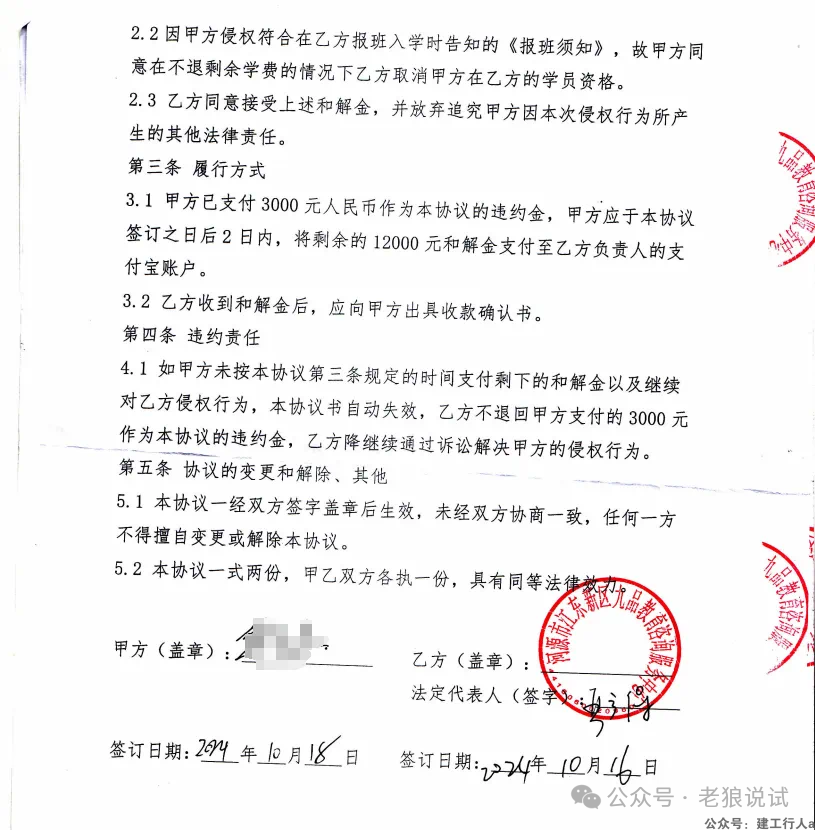 2.2因甲方侵权符合在乙方报班入学时告知的《报班须知》，故甲方同
意在不退剩余学费的情况下乙方取消甲方在乙方的学员资格。
2.3 乙方同意接受上述和解金，并放弃追究甲方因本次侵权行为所产
生的其他法律责任。
第三条 履行方式
3.1 甲方已支付3000元人民币作为本协议的违约金，甲方应于本协议
签订之日后2日内，将剩余的12000元和解金支付至乙方负责人的支
付宝账户。
3.2 乙方收到和解金后，应向甲方出具收款确认书。
第四条 违约责任
4.1 如甲方未按本协议第三条规定的时间支付剩下的和解金以及继续
对乙方侵权行为，本协议书自动失效，乙方不退回甲方支付的3000元
作为本协议的违约金，乙方降继续通过诉讼解决甲方的侵权行为。
第五条 协议的变更和解除、其他
5.1 本协议一经双方签字盖章后生效，未经双方协商一致，任何一方
不得擅自变更或解除本协议。
5.2 本协议一式两份，甲乙双方各执一份，具有同等法律效力。
甲方（盖章）：
乙方（盖章）：
法定代表人（签字）：
河源市江东新区九品教育咨询服务中心
九品教育咨询服务中心
九品教育咨询服
签订日期：2024年10月18日
签订日期：2024年10月16日
公众号·老狼说试
公众号：建工行人a